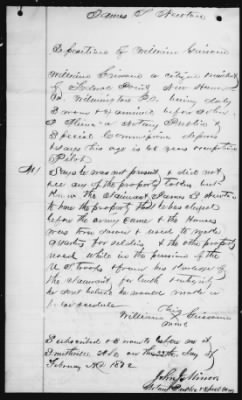 James S Newton
Deposition of William Grissom
William Grissom a citizen resident
of Federal Point New Hanover
Co. Wilmington P.O. being duly
sworn & examined before John
J. Minor a Notary Public &
Special Commissioner deposes
& says his age is 61 years occupation
Pilot
Says he was not present & did not
see any of the property taken but
knew the Claimant James S Newton
to have the property that he has alleged
before the army came & the Houses
was torn down & used to make
quarters for soldiers & the other property
used while in the possession of the
U S troops & from his knowledge of
the Claimant for truth & integrity
he dont believe he would make a
false schedule
his
William X Grissom
mark
Subscribed & sworn to before me at
Smithville N.C. on this 22nd day of
February AD 1872
John J Minor
Notary Public & Special Com